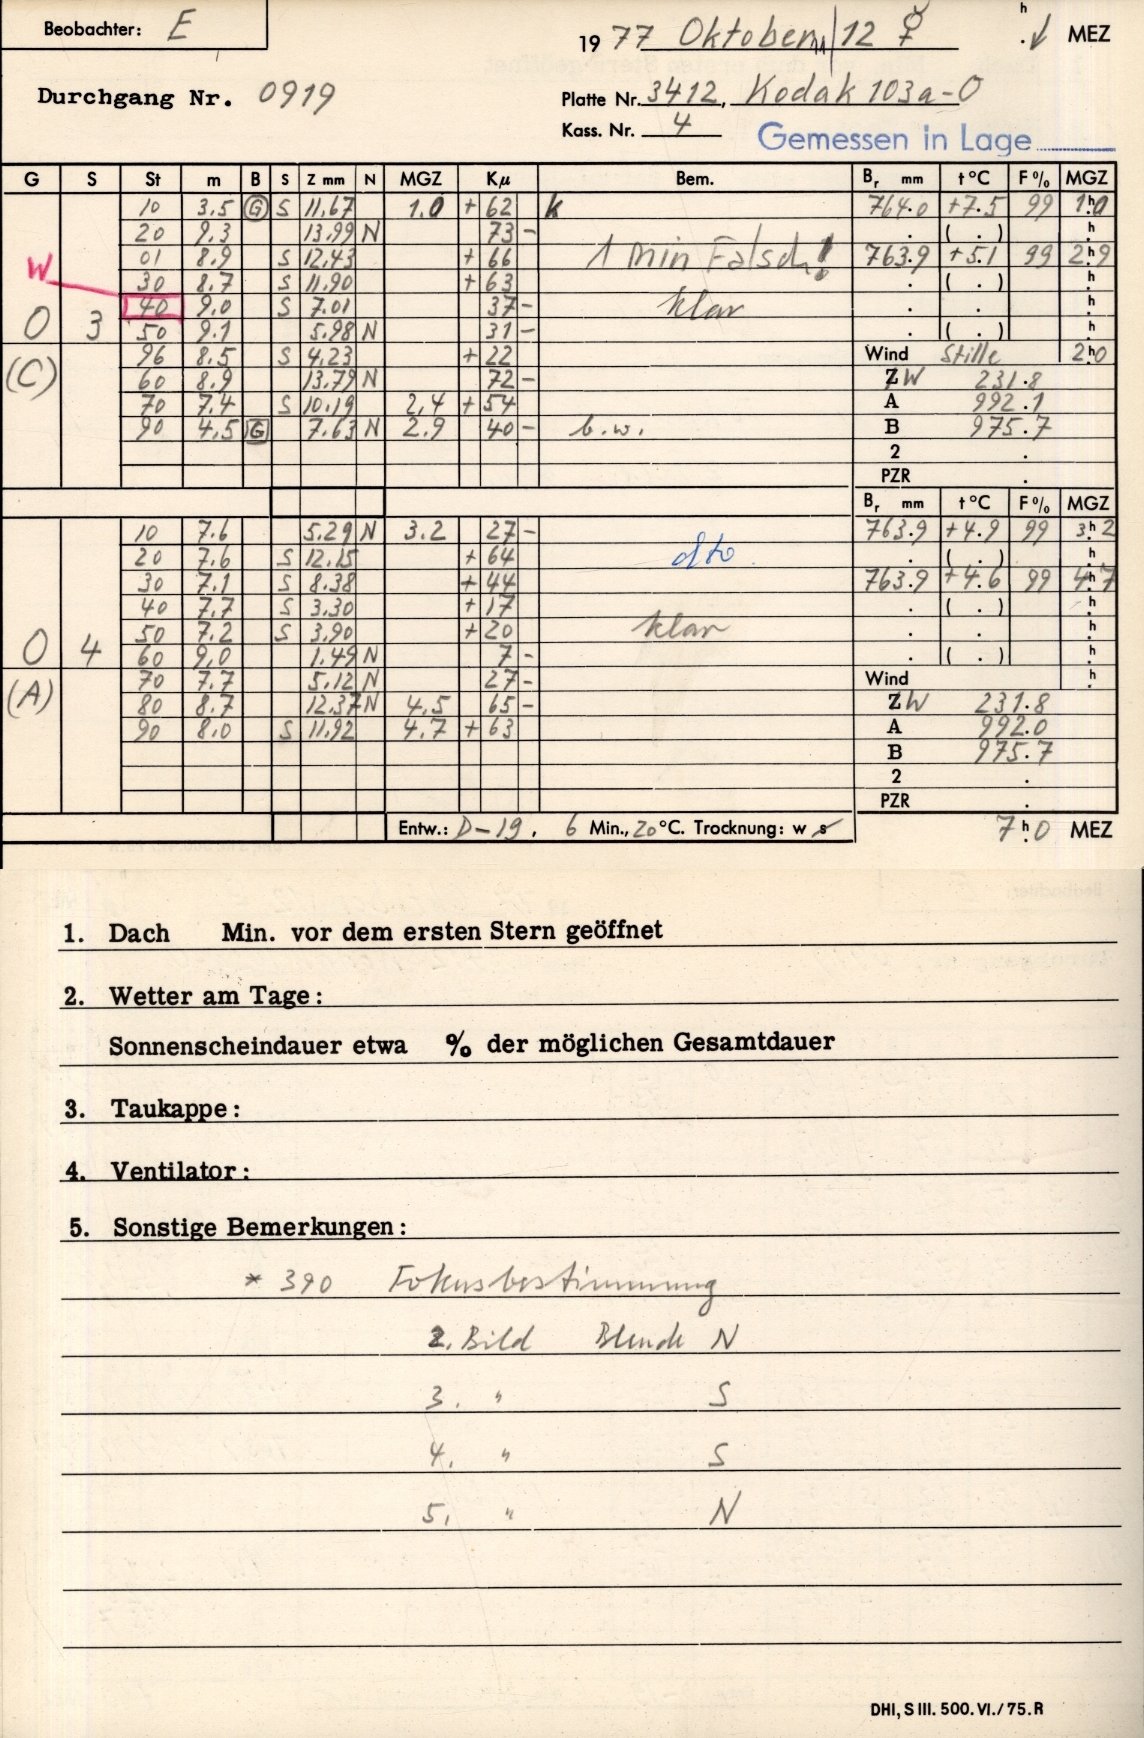 Beobachter: E
1977 Oktober 11/12 ☿ h . ↓ MEZ
Durchgang Nr. 0919
Platte Nr. 3412, Kodak 103a-O
Kass. Nr. 4
Gemessen in Lage
G S St m B S Z mm N MGZ Kμ Bem. Br mm t °C F % MGZ
10 3.5 G S 11.67 1.0 + 62 k 764.0 +7.5 99 1h0
20 9.3 13.99 N 73 - . ( . ) h
01 8.9 S 12.43 + 66 1 min Falsch! 763.9 +5.1 99 2h9
W 30 8.7 S 11.90 + 63 . ( . ) h
40 9.0 S 7.01 37 - klar . . h
0 3 50 9.1 5.98 N 31 - . ( . ) h
(C) 96 8.5 S 4.23 + 22 Wind Stille 2h0
60 8.9 13.79 N 72 - ZW 231.8
70 7.4 S 10.19 2.4 + 54 A 992.1
90 4.5 G 7.63 N 2.9 40 - b.w. B 975.7
2 .
PZR .
Br mm t °C F % MGZ
10 7.6 5.29 N 3.2 27 - 763.9 +4.9 99 3h2
20 7.6 S 12.15 + 64 dto. . ( . ) h
30 7.1 S 8.38 + 44 763.9 +4.6 99 4h7
40 7.7 S 3.30 + 17 . ( . ) h
50 7.2 S 3.90 + 20 klar . . h
0 4 60 9.0 1.49 N 7 - . ( . ) h
(A) 70 7.7 5.12 N 27 - Wind h
80 8.7 12.37 N 4.5 65 - ZW 231.8
90 8.0 S 11.92 4.7 + 63 A 992.0
B 975.7
2 .
PZR .
Entw.: D-19, 6 Min., 20 °C. Trocknung: w s 7h0 MEZ
1. Dach Min. vor dem ersten Stern geöffnet
2. Wetter am Tage:
Sonnenscheindauer etwa % der möglichen Gesamtdauer
3. Taukappe:
4. Ventilator:
5. Sonstige Bemerkungen:
* 390 Fokusbestimmung
2. Bild Blende N
3. " S
4. " S
5. " N
DHI, S III. 500. VI./75. R